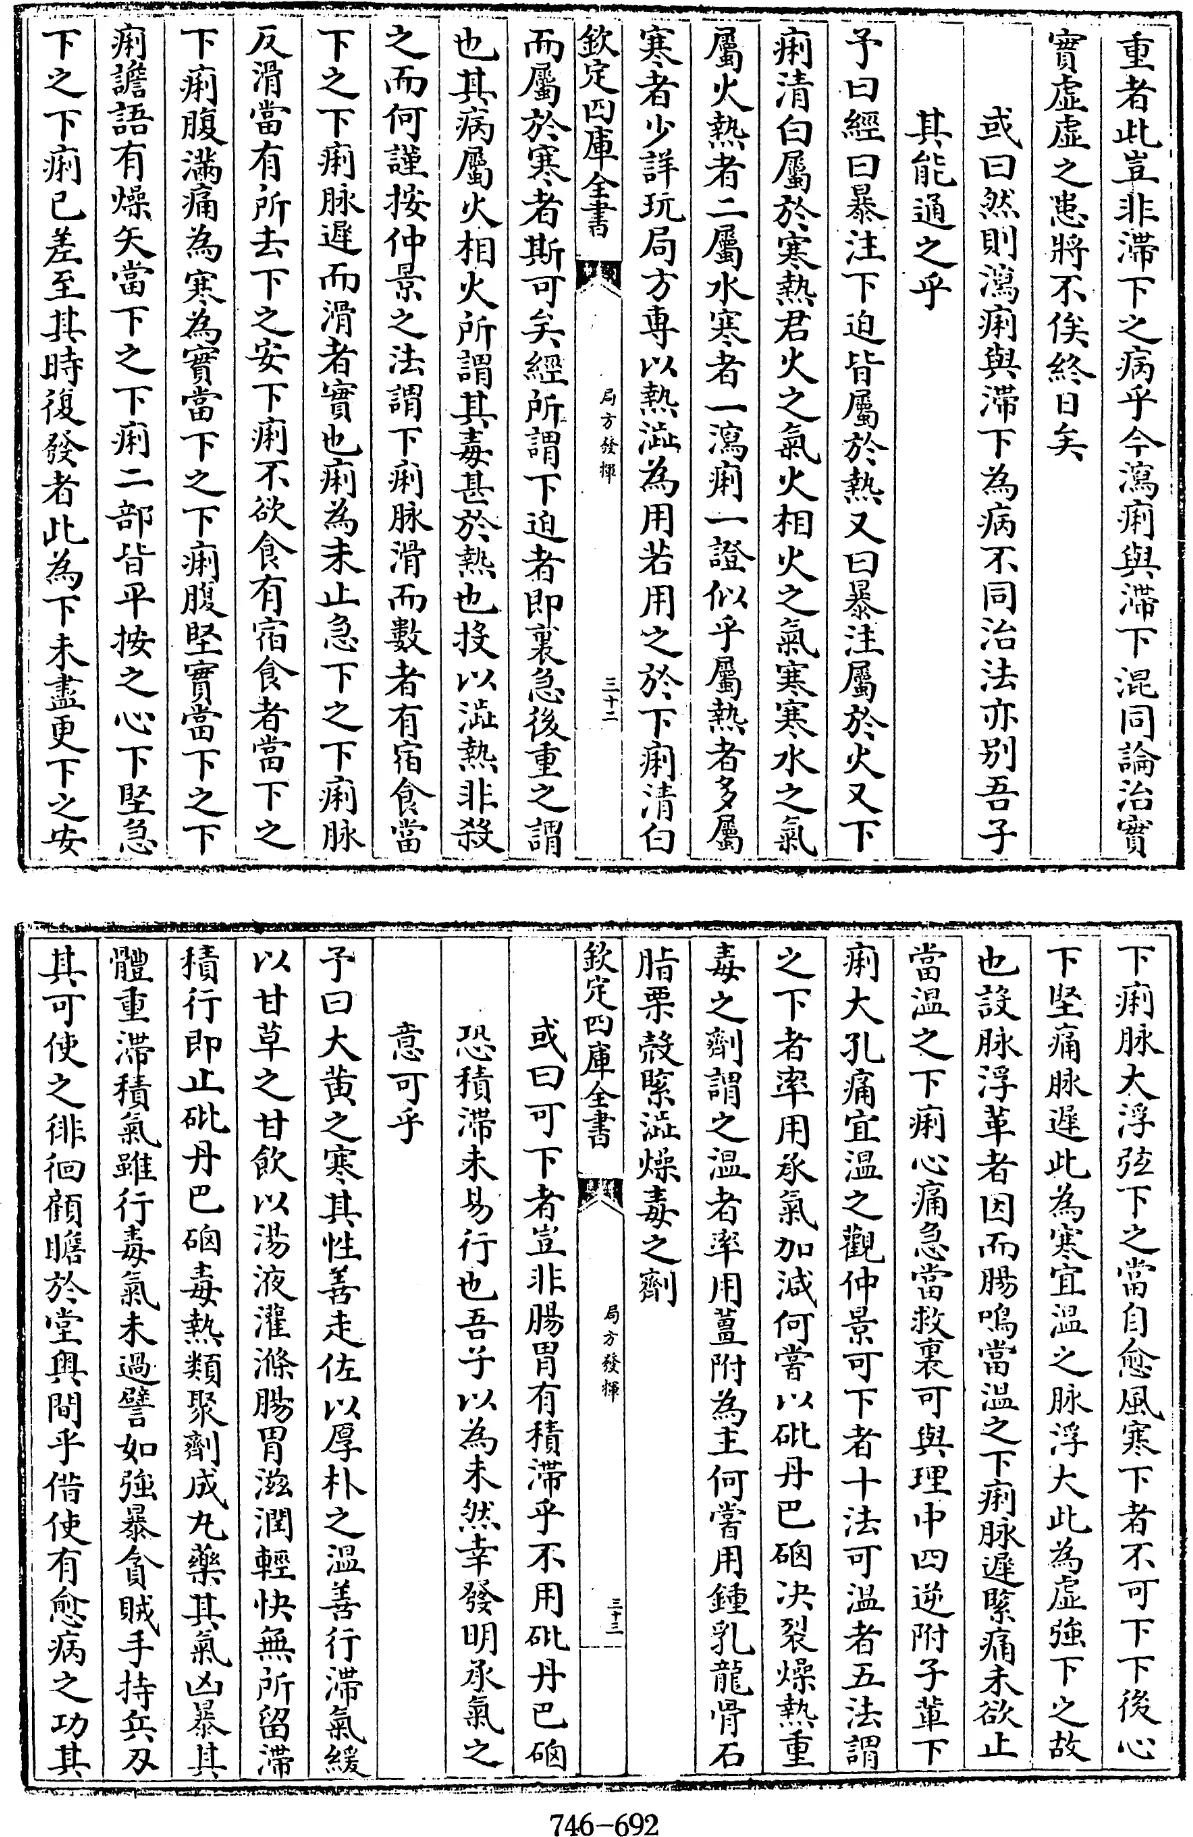 重者此豈非滯下之病乎今瀉痢與滯下混同論治實
實虛虛之患將不俟終日矣
或曰然則瀉痢與滯下為病不同治法亦别吾子
其能通之乎
予曰經曰暴注下迫皆屬於熱又曰暴注屬於火又下
痢清白屬於寒熱君火之氣火相火之氣寒寒水之氣
屬火熱者二屬水寒者一瀉痢一證似乎屬熱者多屬
寒者少詳玩局方專以熱澁為用若用之於下痢清白
欽定四庫全書
局方發揮
三十二
而屬於寒者斯可矣經所謂下迫者即裏急後重之謂
也其病屬火相火所謂其毒甚於熱也投以澁熱非殺
之而何謹按仲景之法謂下痢脉滑而數者有宿食當
下之下痢脉遲而滑者實也痢為未止急下之下痢脉
反滑當有所去下之安下痢不欲食有宿食者當下之
下痢腹滿痛為寒為實當下之下痢腹堅實當下之下
痢譫語有燥矢當下之下痢二部皆平按之心下堅急
下之下痢已差至其時復發者此為下未盡更下之安
下痢脉大浮弦下之當自愈風寒下者不可下下後心
下堅痛脉遲此為寒宜温之脉浮大此為虛強下之故
也設脉浮革者因而腸鳴當温之下痢脉遲緊痛未欲止
當温之下痢心痛急當救裏可與理中四逆附子軰下
痢大孔痛宜温之觀仲景可下者十法可温者五法謂
之下者率用承氣加減何嘗以砒丹巴硇决裂燥熱重
毒之劑謂之温者率用薑附為主何嘗用鍾乳龍骨石
脂粟殻緊澁燥毒之劑
欽定四庫全書
局方發揮
三十三
或曰可下者豈非腸胃有積滯乎不用砒丹巴硇
恐積滯未易行也吾子以為未然幸發明承氣之
意可乎
予曰大黃之寒其性善走佐以厚朴之温善行滯氣緩
以甘草之甘飲以湯液灌滌腸胃滋潤輕快無所留滯
積行即止砒丹巴硇毒熱類聚劑成丸藥其氣凶暴其
體重滯積氣雖行毒氣未過譬如強暴貪賊手持兵刃
其可使之徘徊顧瞻於堂奥間乎借使有愈病之功其
746-692